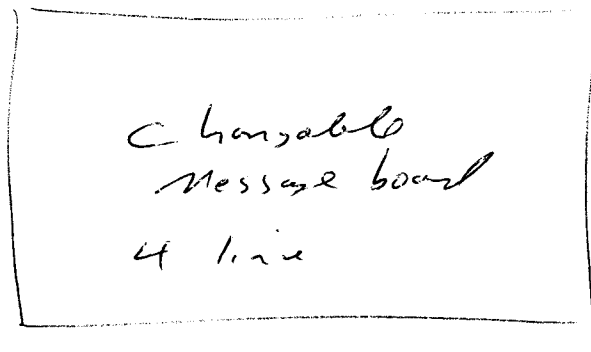 Changable
Message board
4 line